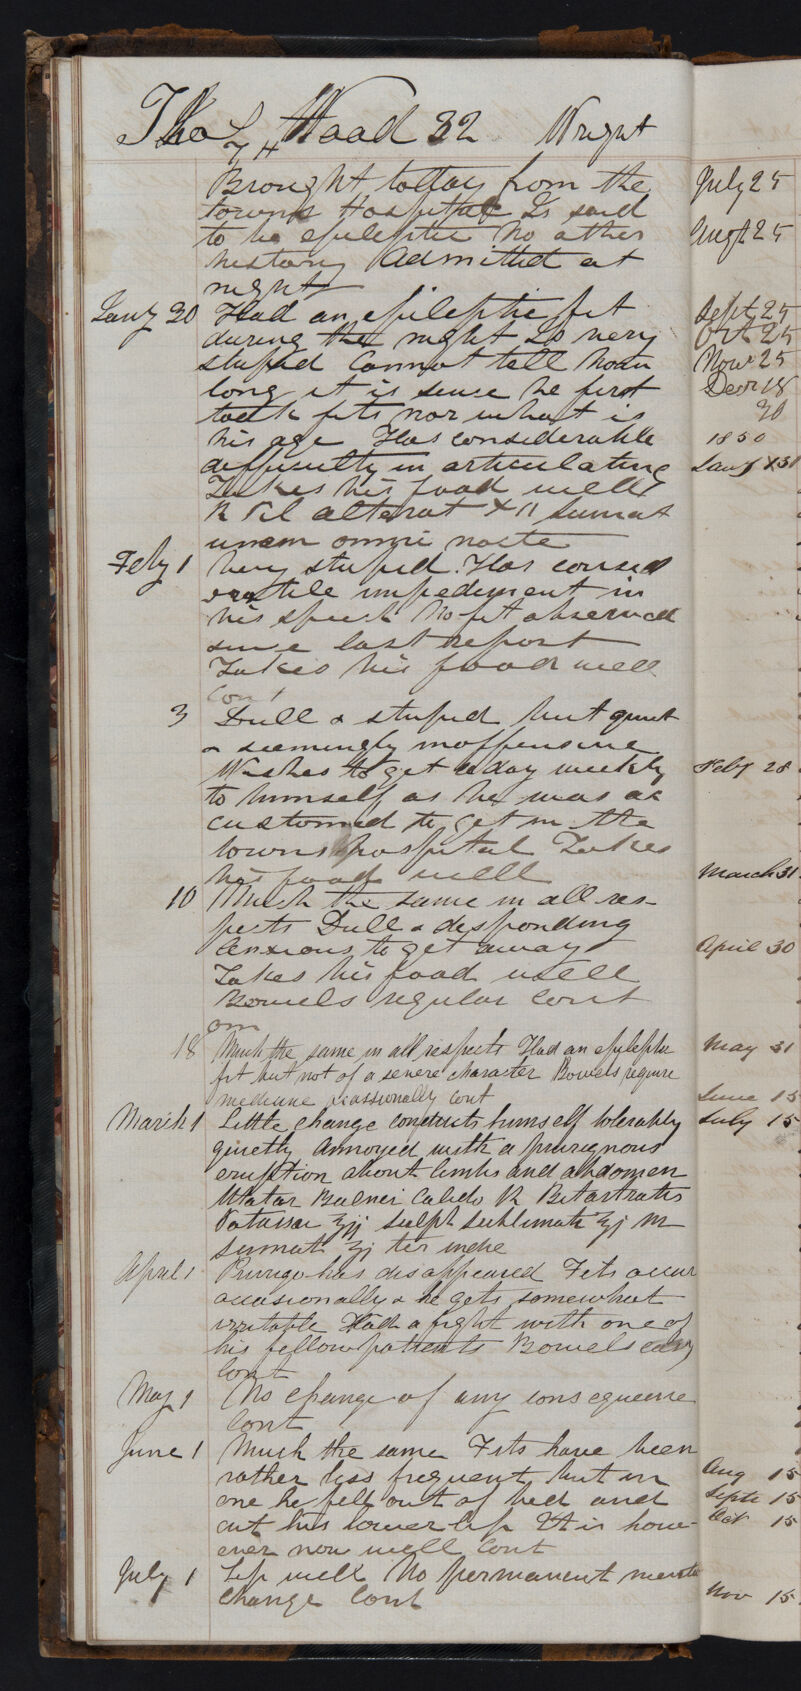 Thos Wood 32 Wright
7 H
Brought today from the
towns Hospital Is said
to be epileptic No other
history Admitted at
night
Jany 30 Had an epileptic fit
during the night Is very
stupid Cannot tell how
long it is sense he first
took fits nor what is
his age Has considerable
difficulty in articulating
Takes his food well
R Pil alterat XII Sumat
unam omni nocte
Feby 1 Very stupid. Has consid
erable impediment in
his speech No fit observed
since last report
Takes his food well
Cont
3 Dull & stupid but quiet
& seemingly inoffensive
Wishes to get a day weekly
to himself as he was ac
customed to get in the
towns hospital Takes
his food well
10 Much the same in all res-
pects Dull & desponding
Anxious to get away
Takes his food well
Bowels regular Cont
om
18 Much the same in all respects Had an epileptic
fit but not of a severe character Bowels require
medicine occassionally Cont
March 1 Little change conducts himself tolerably
quietly Annoyed with a pruriginous
eruption about limbs and abdomen
Utatur Balnei Calido R Bitartratis
Potassae ʒij sulph sublimati ʒj M
Sumat ʒj ter indie
April 1 Prurigo has disappeared Fits occur
occasionally & he gets somewhat
irritable Had a fight with one of
his fellow patients Bowels easy
Cont
May 1 No change of any consequence
Cont
June 1 Much the same Fits have been
rather less frequent but in
one he fell out of bed and
cut his lower lip It is how-
ever now well Cont
July 1 Lip well No permanent mental
change Cont
July 25
Augt 25
Sept 25
Oct 25
Novr 25
Decr 18
30
1850
Jany 31
Feby 28
March 31
April 30
May 31
June 15
July 15
Aug 15
Septr 15
Oct 15
Nov 15